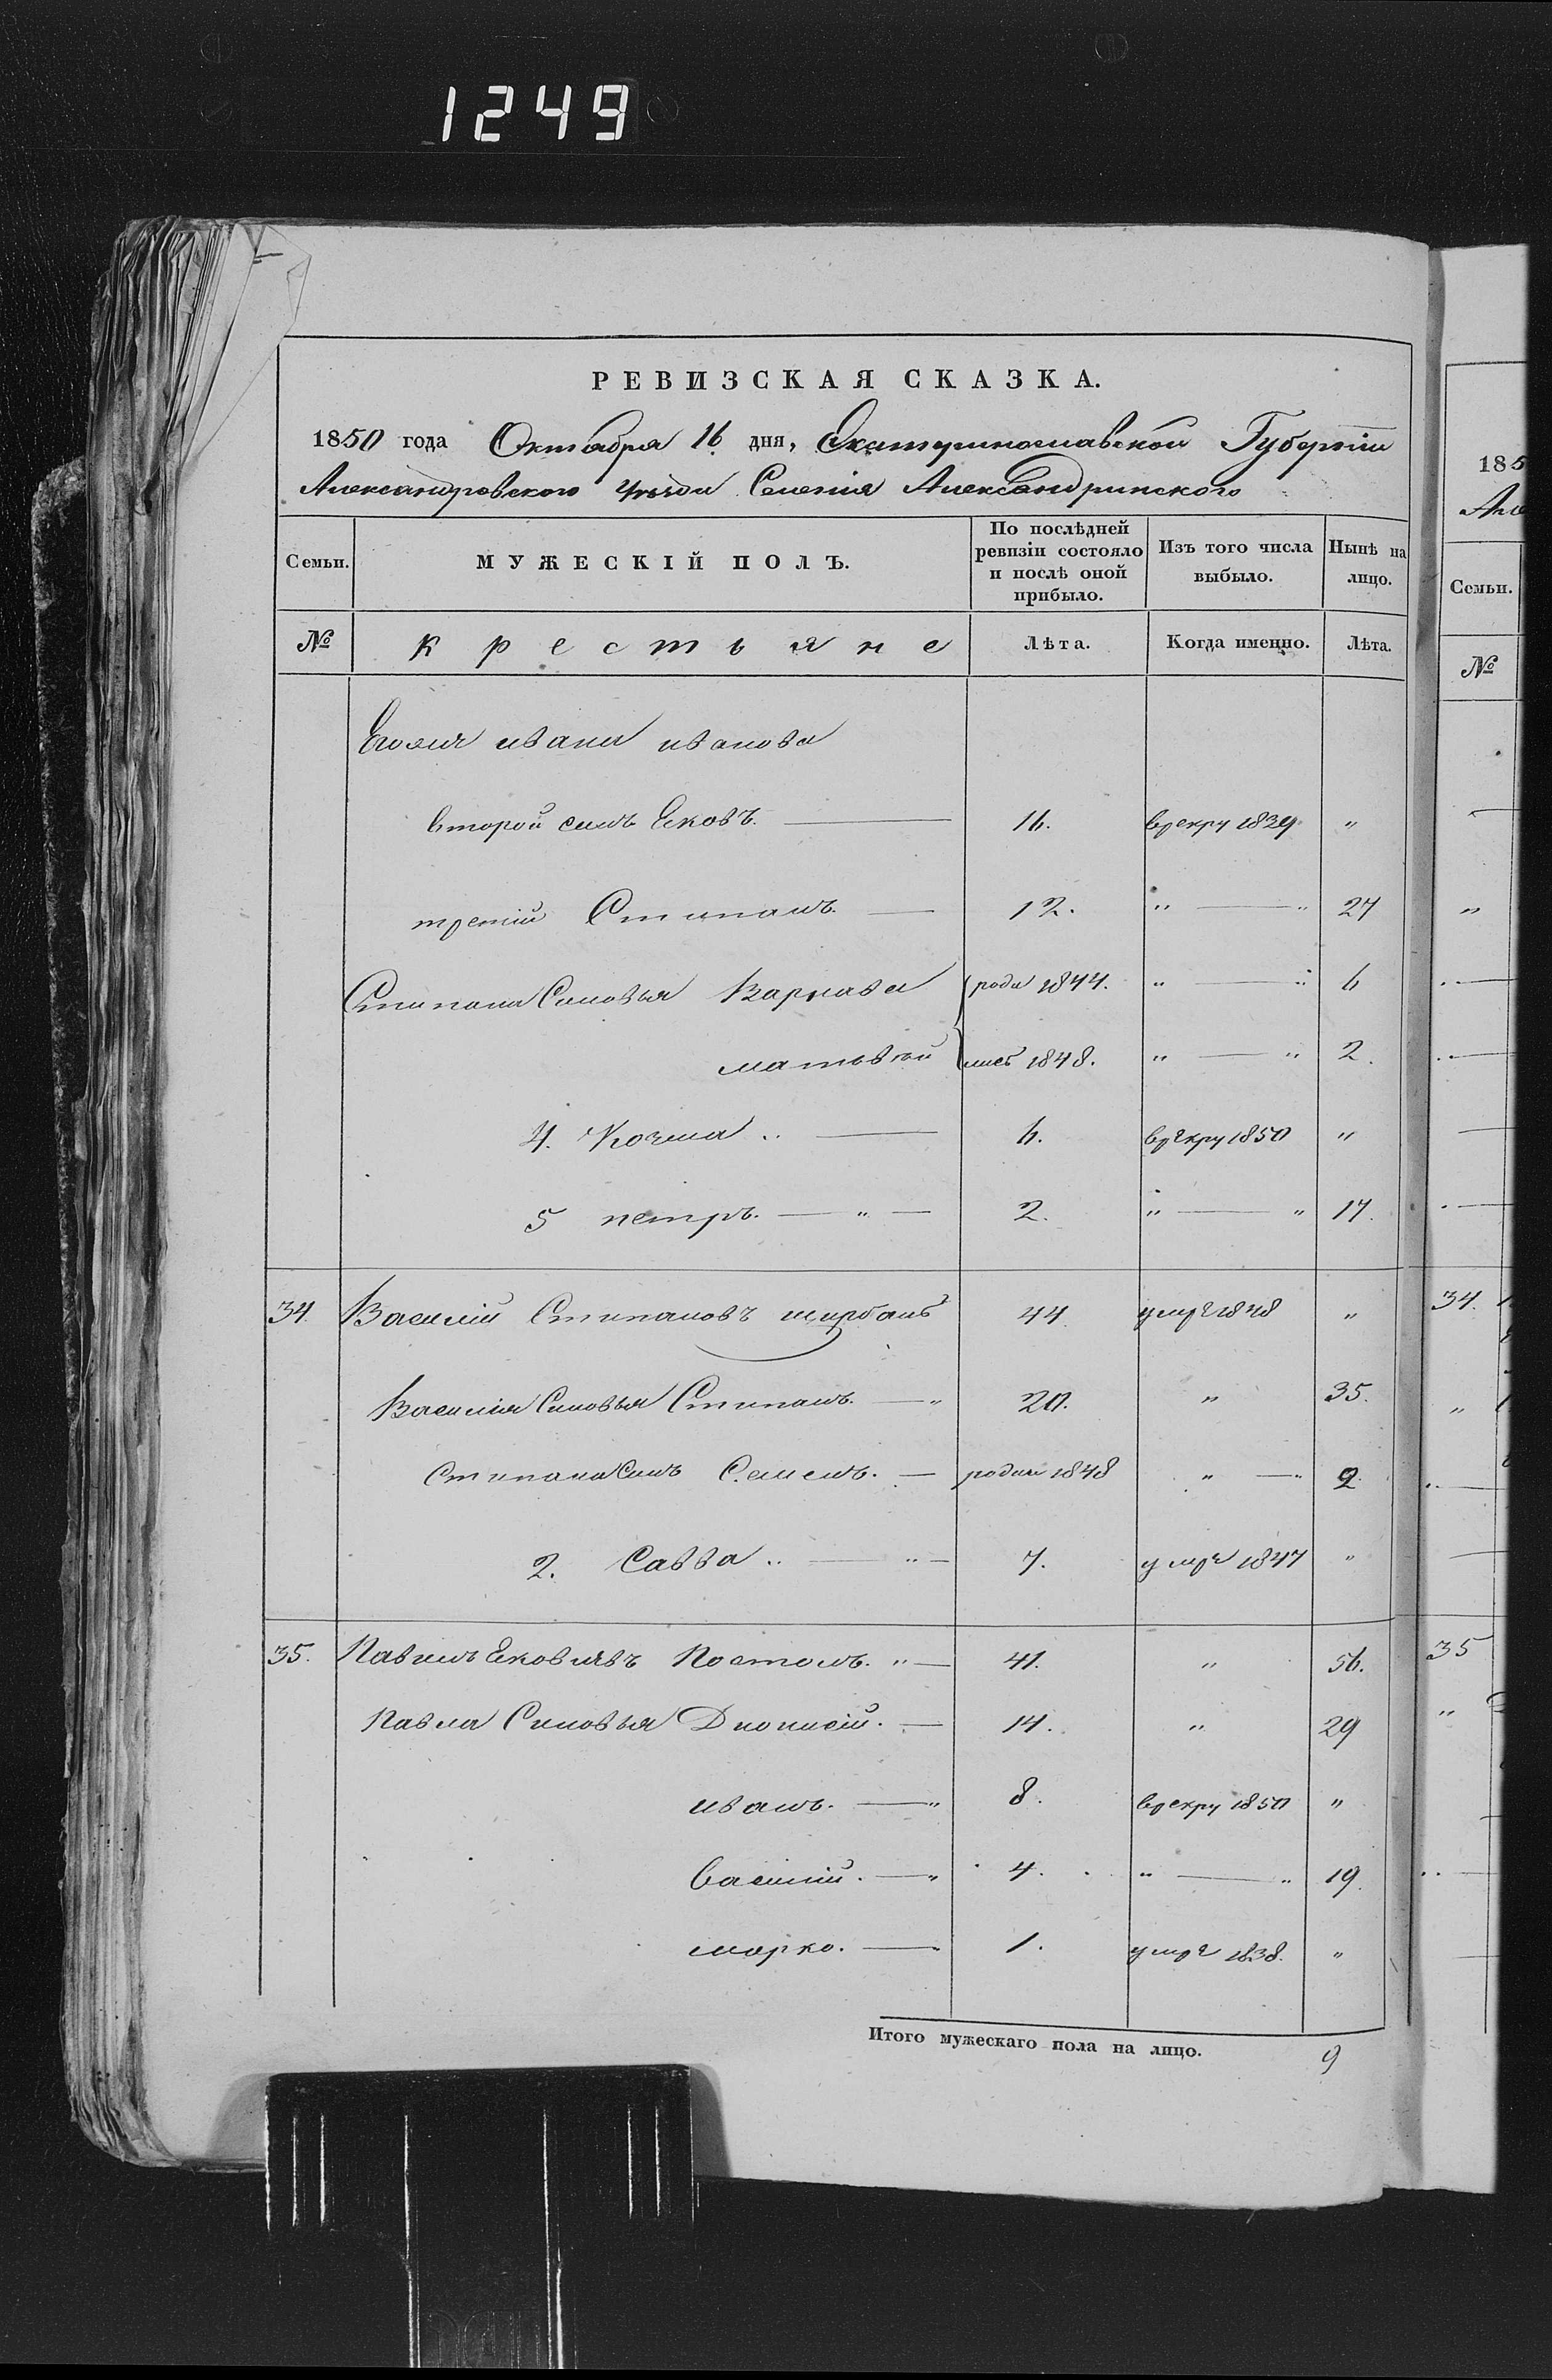 1249
РЕВИЗСКАЯ СКАЗКА.
1850 года Октября 16 дня, Екатеринославской Губернiи
Александровского уезда Селенiя Александринского
Семьи. МУЖЕСКIЙ ПОЛЪ. По послѣдней ревизiи состояло и послѣ оной прибыло. Изъ того числа выбыло. Нынѣ на лицо.
№ крестьяне Лѣта. Когда именно. Лѣта.
ивана иванова
второй синъЕковъ. 16. врекру 1839 "
третiй Стипанъ. 12. " " 27
Стипана Синовья Варнава роди 1844. " " 6
матвѣй лись 1848. " " 2.
4. Козма .. 6. врекру 1850 "
5 петръ. " 2. " " 17.
34. Василiй Стипановъ щирбань 44. умре 1848 "
Василiя Синовья Стипанъ. " 20. " 35.
Стипана Синъ Семенъ. родил 1848 " " 2.
2. Савва .. " 7. умре 1847 "
35. Павилъ Ековлевъ Постолъ. " 41. " 56.
Павла Синовья Дионисiй. 14. " 29
иванъ. " 8. врекру 1850 "
василiй. " 4. " " 19.
марко. " 1. умре 1838. "
Итого мужескаго пола на лицо. 9
185
Але
Семьи.
№
34.
35